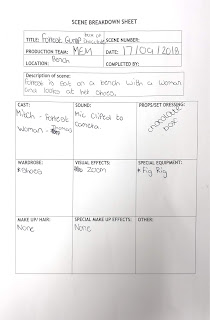 SCENE BREAKDOWN SHEET
TITLE: Forrest Gump Box of Chocolates SCENE NUMBER:
PRODUCTION TEAM: MEM DATE: 17/09/2018
LOCATION: Bench COMPLETED BY:
Description of scene:
Forrest is sat on a bench with a woman
and looks at her shoes.
CAST: SOUND: PROPS/SET DRESSING:
Mitch - Forrest Mic Clipped to chocolate
Woman - camera. box
WARDROBE: VISUAL EFFECTS: SPECIAL EQUIPMENT:
Shoes Zoom Fig Rig
MAKE UP/ HAIR: SPECIAL MAKE UP EFFECTS: OTHER:
None None